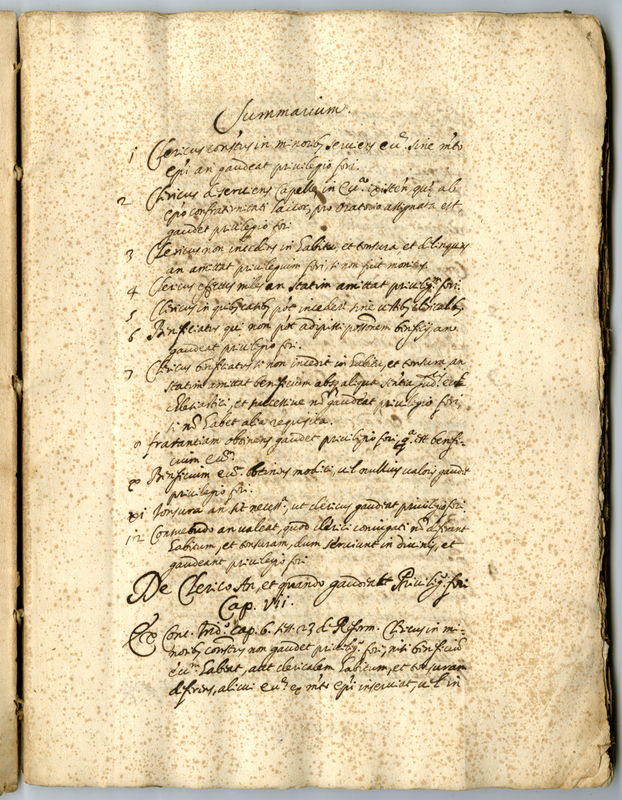 Summarium.
1 Clericus constus in minoribs serviens ecc. sine mto
epi an gaudeat privilegio fori.
2 Clericus deserviens Capelle in ecc. existen que ab
epo confraternitati laicor. pro oratorio assignata est,
gaudet privilegio fori
3 Clericus non incedens in habitu, et tonsura et delinquens
an amittat privilegium fori, si non fuit monitus.
4 Clericus effectus miles an statim amittat privileg. fori.
5 Clericus in quibs casibs pot incedere sine vestibs clericalibs
6 Beneficiatus qui non pot adipisci possonem beneficij an
gaudeat privilegio fori.
7 Clericus beneficiatus si non incedit in habitu, et tonsura, an
statim amittat beneficium absq aliqua sentia iudicis
Ecclesiastici, et successive no gaudeat privilegio fori
si no habet alia requisita.
obtinens gaudet privilegio fori, q. est benefi-
cium ecc.
x Beneficium ecc. obtinens modici, vel nullius valoris gaudet
privilegio fori.
xi Tonsura an sit necess. ut clericus gaudeat privilegio fori.
12 Consuetudo an valeat, quod clerici coniugati no deferant
habitum, et tonsuram, dum serviunt in divinis, et
gaudeant privilegio fori
De Clerico An, et quando gaudeat Privileg. fori
Cap. VII.
Ex Conc. Trid. cap. 6. sess. 23 de Reform. Clericus in mi-
noribs constus non gaudet privileg. fori, nisi beneficiu
eccm habeat, aut clericalem habitum, et tonsuram
deferens, alicui ecc. ex mto epi inserviat, vel in